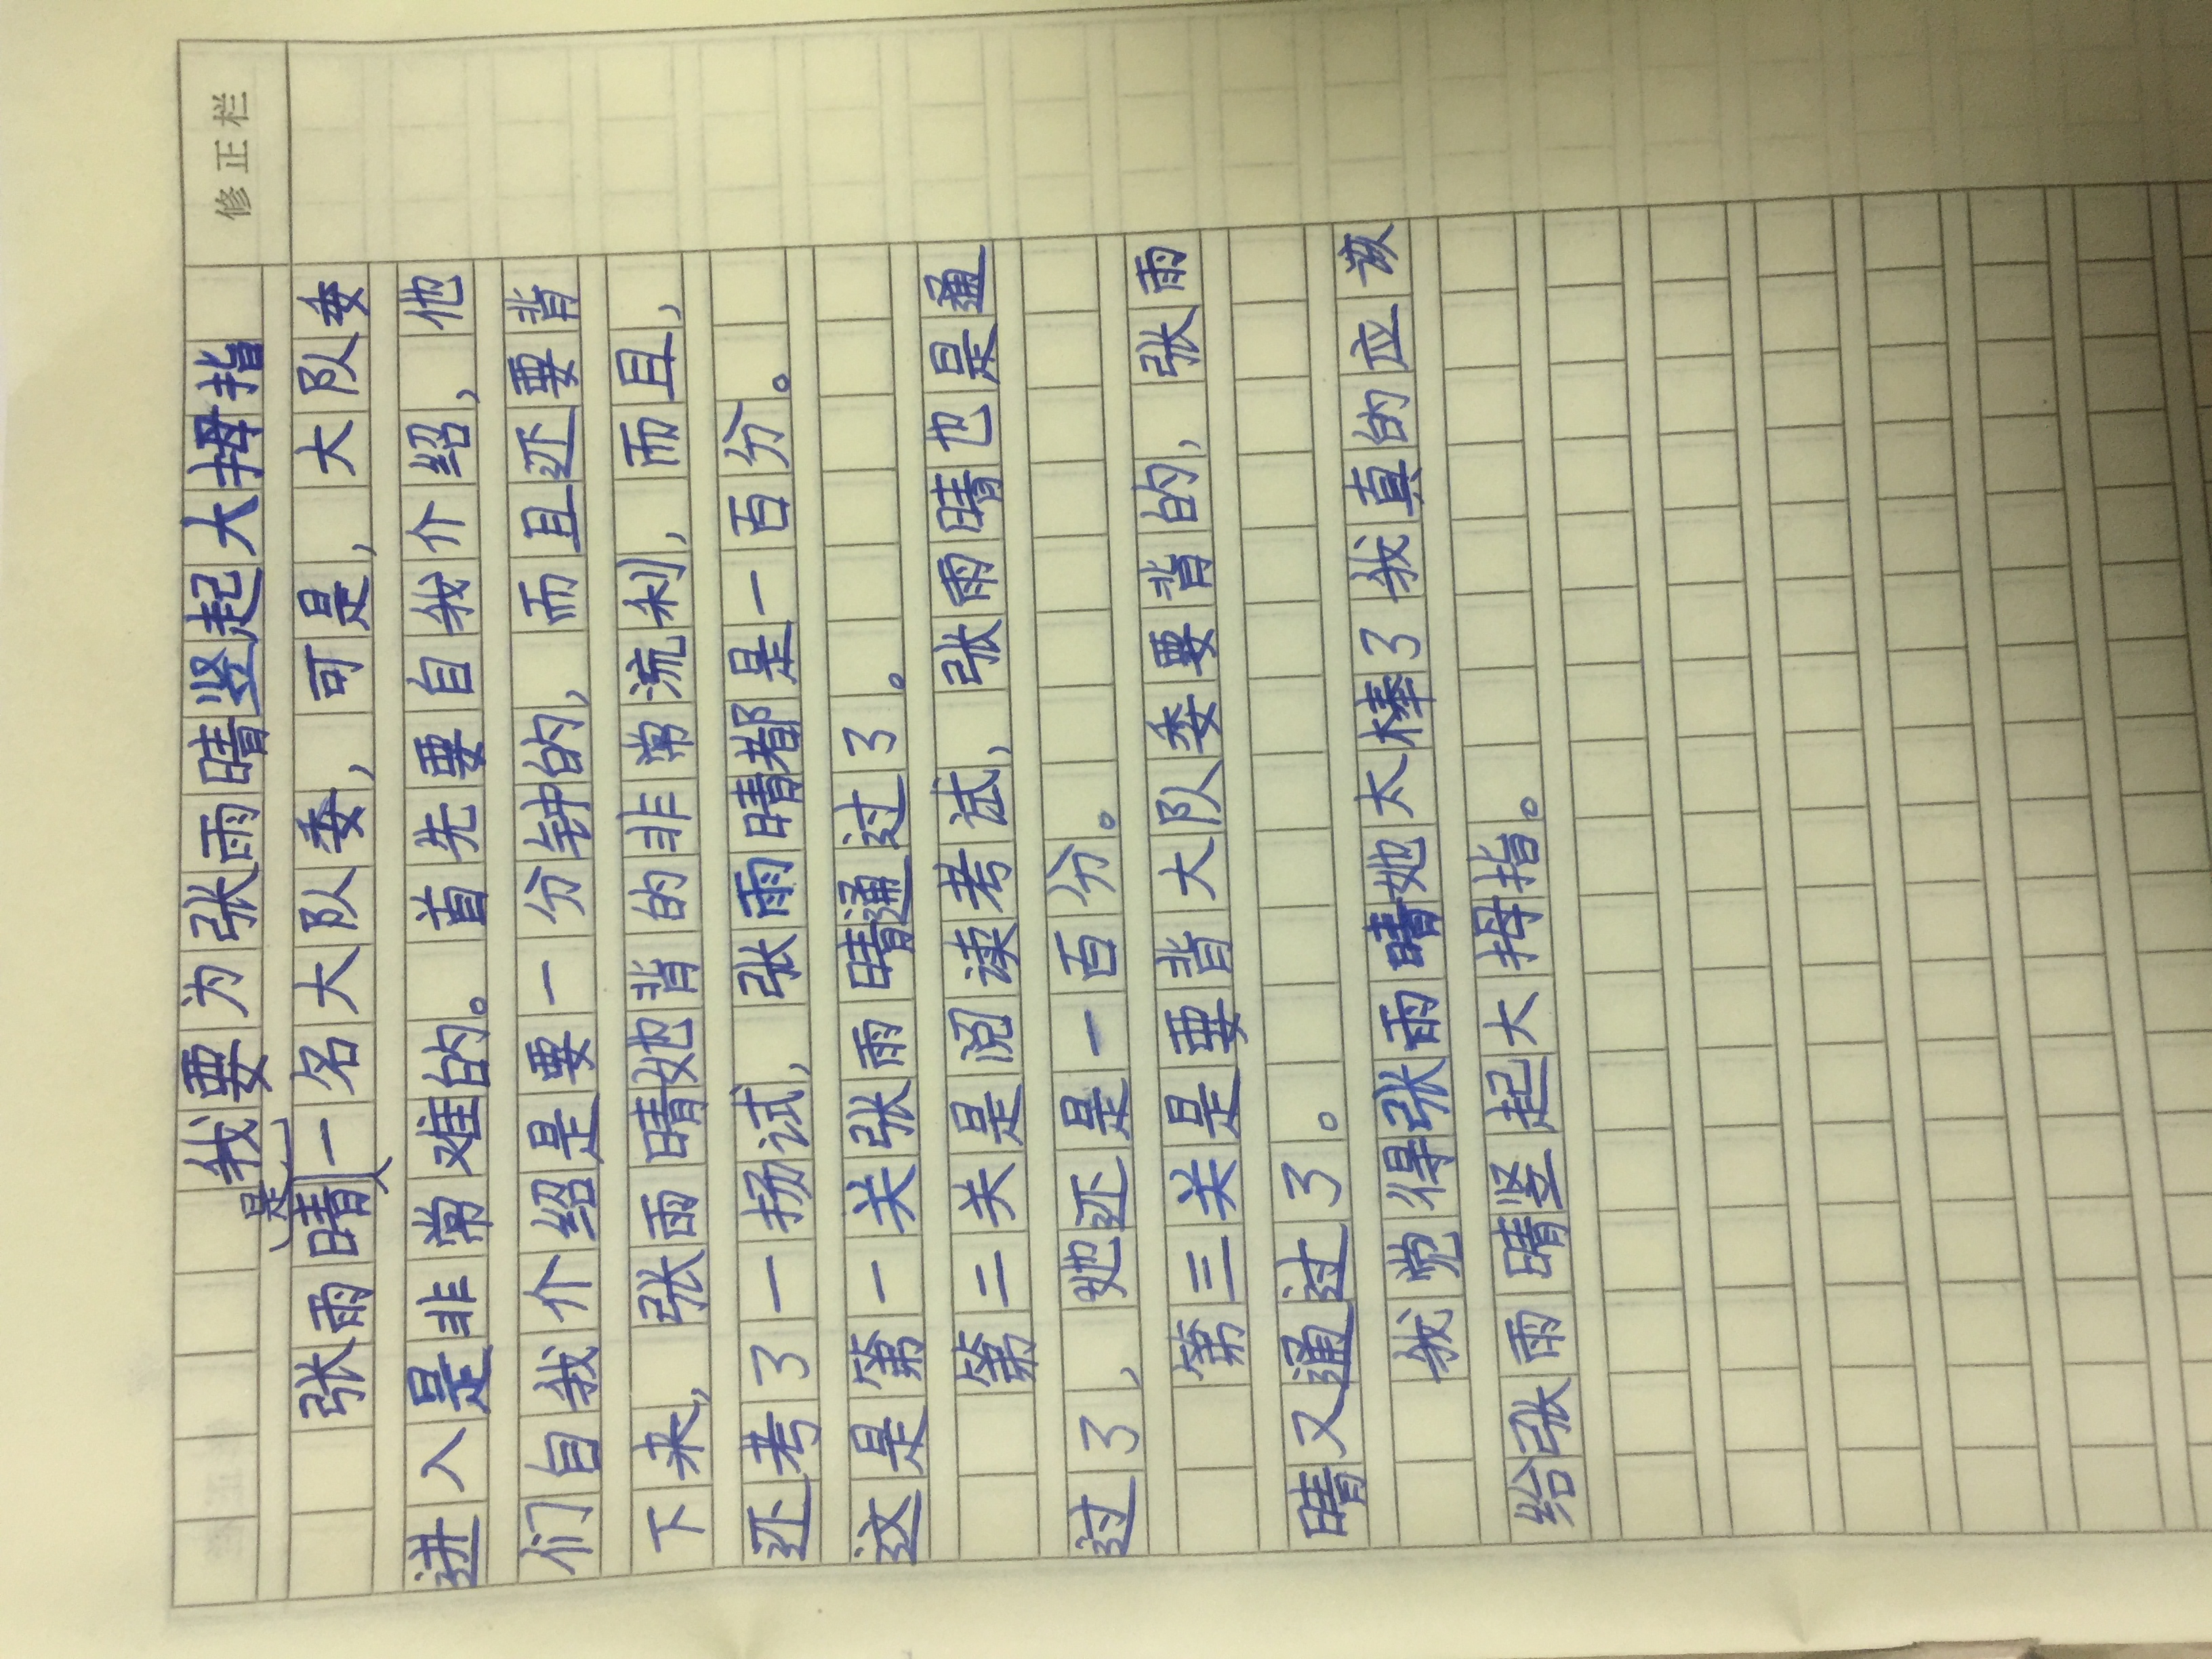 修正栏
我要为张雨晴竖起大拇指
张雨晴(是)一名大队委，可是，大队委
进入是非常难的。首先要自我介绍，他
们自我介绍是要一分钟的，而且还要背
下来，张雨晴她背的非常流利，而且，
还考了一扬试，张雨晴都是一百分。
这是第一关张雨晴通过了。
第二关是阅读考试，张雨晴也是通
过了，她还是一百分。
第三关是要背大队委要背的，张雨
晴又通过了。
我觉得张雨晴她太棒了我真的应该
给张雨晴竖起大拇指。